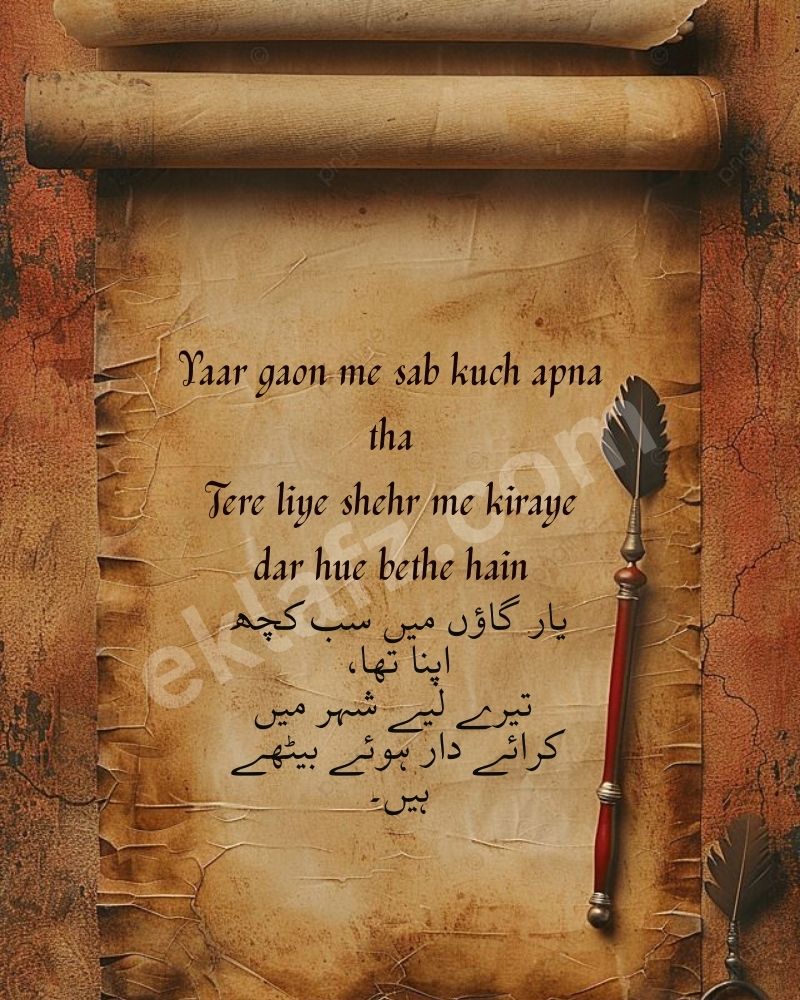 Yaar gaon me sab kuch apna
tha
Tere liye shehr me kiraye
dar hue bethe hain
یار گاؤں میں سب کچھ
اپنا تھا،
تیرے لیے شہر میں
کرائے دار ہوئے بیٹھے
ہیں۔
eklafz.com